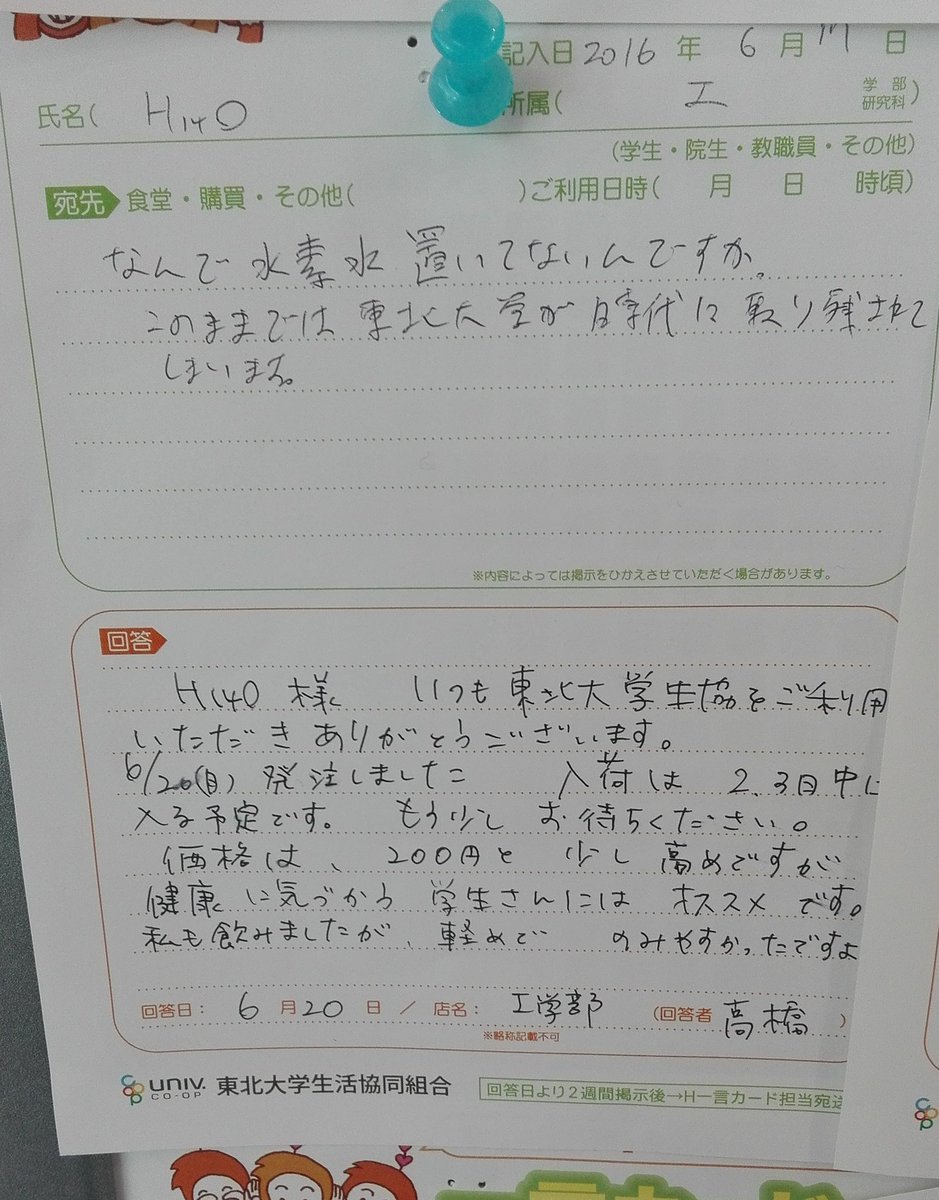 記入日 2016 年 6 月 17 日
氏名( H140 所属( 工 学部 研究科)
(学生・院生・教職員・その他)
宛先 食堂・購買・その他( )ご利用日時( 月 日 時頃)
なんで水素水置いてないんですか。
このままでは東北大学が時代に取り残されて
しまいます。
※内容によっては掲示をひかえさせていただく場合があります。
回答
H140 様 いつも東北大学生協をご利用
いただきありがとうございます。
6/20(月) 発注しました 入荷は 2、3日中に
入る予定です。 もう少し お待ちください。
価格は、200円と 少し 高めですが
健康に気づかう 学生さんには オススメ です。
私も飲みましたが、軽めで のみやすかったですよ
回答日: 6 月 20 日 / 店名: 工学部 (回答者 高橋 )
※略称記載不可
univ. CO-OP 東北大学生活協同組合 回答日より2週間掲示後→H一言カード担当宛送